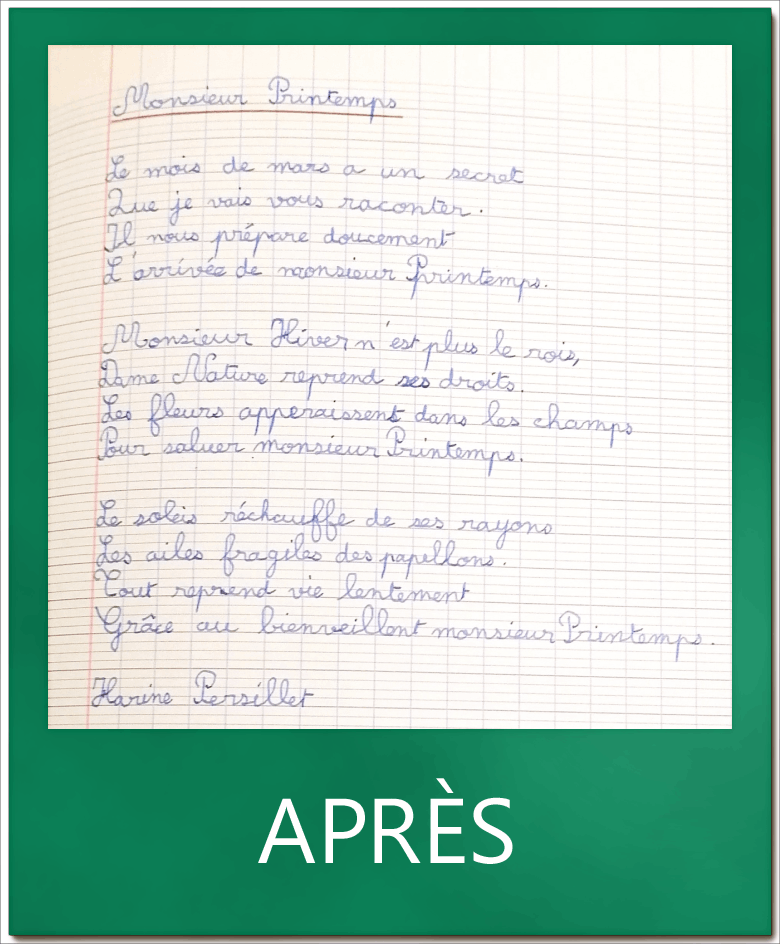 Monsieur Printemps
Le mois de mars a un secret
Que je vais vous raconter.
Il nous prépare doucement
L'arrivée de monsieur Printemps.
Monsieur Hiver n'est plus le rois,
Dame Nature reprend ses droits.
Les fleurs apperaissent dans les champs
Pour saluer monsieur Printemps.
Le soleis réchauffe de ses rayons
Les ailes fragiles des papillons.
Tout reprend vie lentement
Grâce au bienveillont monsieur Printemps.
Karine Persillet
APRÈS